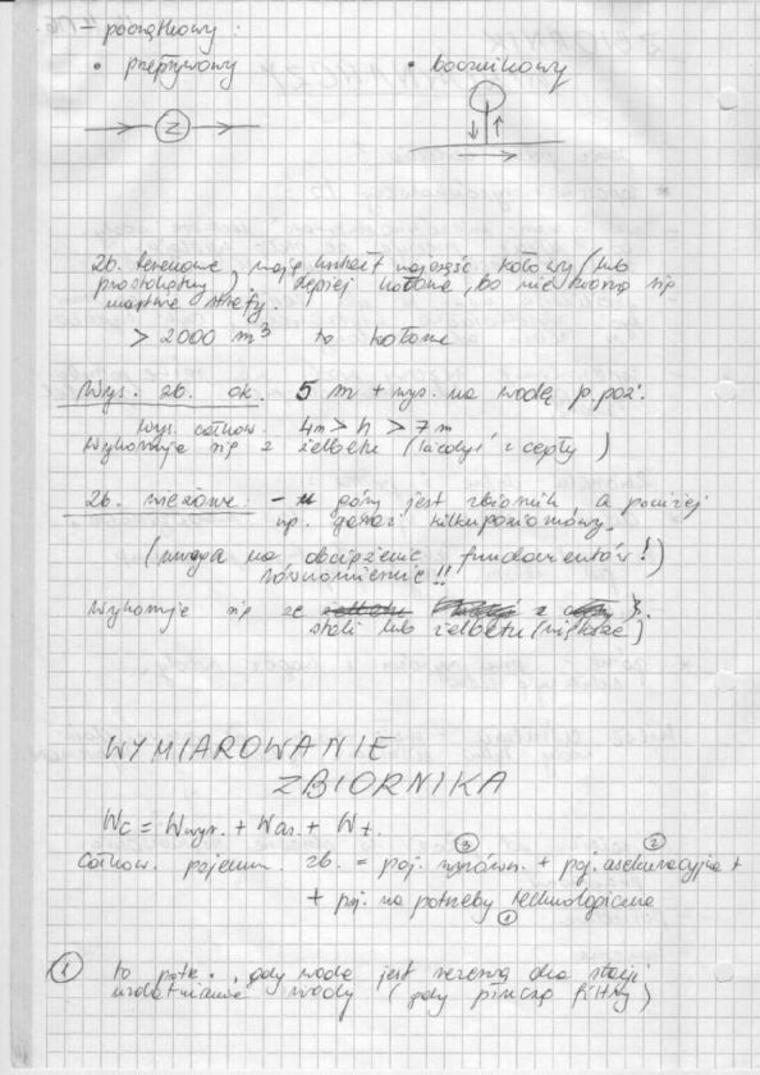 - początkowy:
• przepływowy
• bocznikowy
Z
Zb. terenowe, mają kształt najczęść. kołowy (lub
prostokątny). Lepiej kołowe, bo nie tworzą się
martwe strefy.
> 2000 m³ to kołowe
Wys. zb. ok. 5 m + wys. na wodę p.poż.
Wys. całkow. 4m > h > 7m
Wykonuje się z żelbetu (kiedyś z cegły)
Zb. wieżowe: - u góry jest zbiornik, a poniżej
np. garaż kilkupoziomowy.
(uwaga na obciążenie fundamentów!)
równomiernie!!
Wykonuje się ze
stali lub żelbetu (większe)
WYMIAROWANIE
ZBIORNIKA
Wc = Wwyr. + Was. + Wt.
③ ②
Całkow. pojemn. zb. = poj. wyrówn. + poj. asekuracyjna +
+ poj. na potrzeby technologiczne
①
① to potr., gdy woda jest rezerwą dla stacji
uzdatniania wody (gdy płuczą filtry)